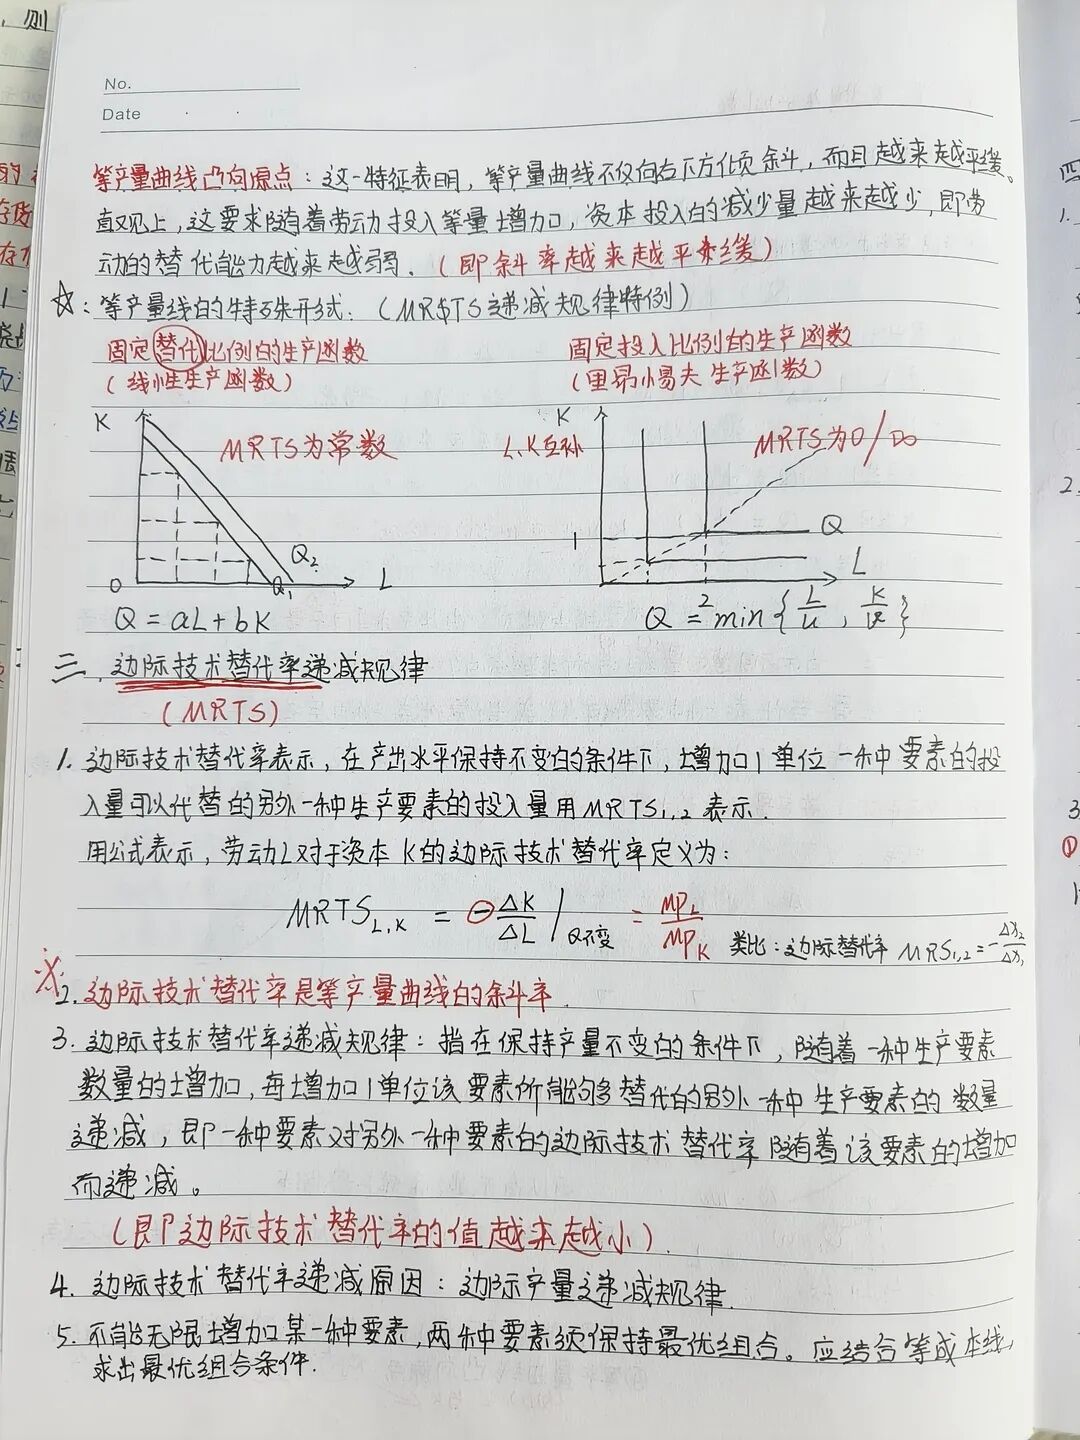 则
No.
Date
等产量曲线凸向原点：这一特征表明，等产量曲线不仅向右下方倾斜，而且越来越平缓。
直观上，这要求随着劳动投入等量增加，资本投入的减少量越来越少，即劳
动的替代能力越来越弱.（即斜率越来越平缓）
☆：等产量线的特殊形式：（MRSTS递减规律特例）
固定替代比例的生产函数
（线性生产函数）
固定投入比例的生产函数
（里昂惕夫生产函数）
K
MRTS为常数
Q₂
Q₁
O
L
Q = aL + bK
K
L、K互补
MRTS为0/∞
1
Q
L
2
Q = min{L/u , K/v}
三、边际技术替代率递减规律
（MRTS）
1. 边际技术替代率表示，在产出水平保持不变的条件下，增加1单位一种要素的投
入量可以代替的另外一种生产要素的投入量用MRTS₁,₂表示.
用公式表示，劳动L对于资本K的边际技术替代率定义为：
MRTS_L,K = -ΔK/ΔL |Q不变 = MP_L/MP_K 类比：边际替代率 MRS₁,₂ = -Δx₂/Δx₁
※2. 边际技术替代率是等产量曲线的斜率.
3. 边际技术替代率递减规律：指在保持产量不变的条件下，随着一种生产要素
数量的增加，每增加1单位该要素所能够替代的另外一种生产要素的数量
递减，即一种要素对另外一种要素的边际技术替代率随着该要素的增加
而递减。
（即边际技术替代率的值越来越小）.
4. 边际技术替代率递减原因：边际产量递减规律.
5. 不能无限增加某一种要素，两种要素须保持最优组合。应结合等成本线，
求出最优组合条件.
四
1.
2.
3.
①